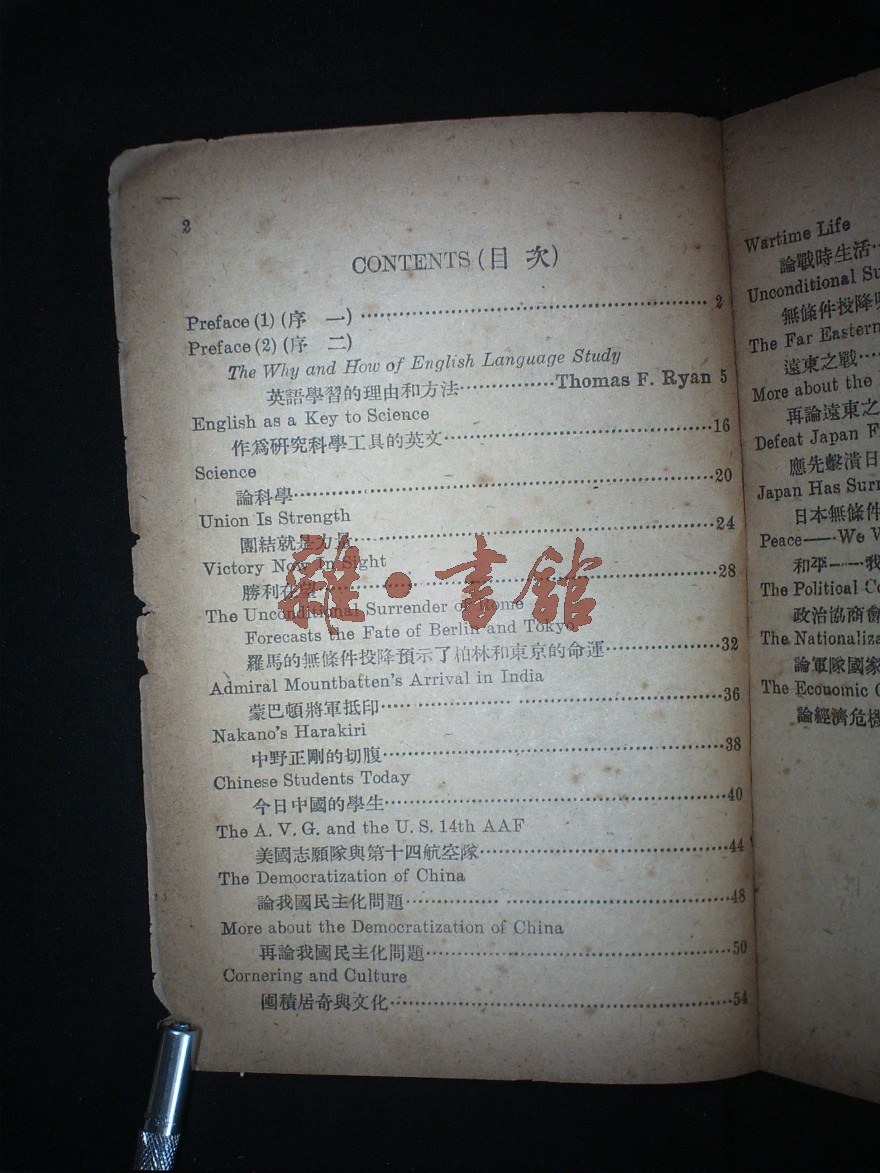 2
CONTENTS (目 次)
Preface (1) (序 一) 2
Preface (2) (序 二)
The Why and How of English Language Study
英語學習的理由和方法 Thomas F. Ryan 5
English as a Key to Science
作爲研究科學工具的英文 16
Science
論科學 20
Union Is Strength
團結就是力量 24
Victory Now In Sight
勝利在望 28
The Unconditional Surrender of Rome
Forecasts the Fate of Berlin and Tokyo
羅馬的無條件投降預示了柏林和東京的命運 32
Admiral Mountbatten's Arrival in India
蒙巴頓將軍抵印 36
Nakano's Harakiri
中野正剛的切腹 38
Chinese Students Today
今日中國的學生 40
The A. V. G. and the U. S. 14th AAF
美國志願隊與第十四航空隊 44
The Democratization of China
論我國民主化問題 48
More about the Democratization of China
再論我國民主化問題 50
Cornering and Culture
囤積居奇與文化 54
雜·書館
Wartime Life
論戰時生活
Unconditional Su
無條件投降
The Far Eastern
遠東之戰
More about the
再論遠東之
Defeat Japan F
應先擊潰日
Japan Has Surr
日本無條件
Peace——We W
和平——我
The Political Co
政治協商會
The Nationaliza
論軍隊國家
The Ecouomic C
論經濟危機